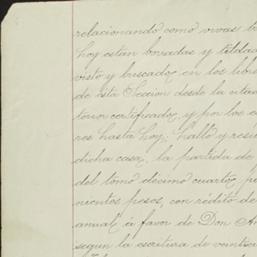 relacionando como vivas
hoy están borradas y tildad
visto y buscados en los libro
de esta Sección desde la citad
torio certificados, y por los
res hasta hoy; hallo y resu
dicha casa, la partida de
del tomo décimo cuarto,
nientos pesos, con rédito de
anual, á favor de Don
segun la escritura de veintiun